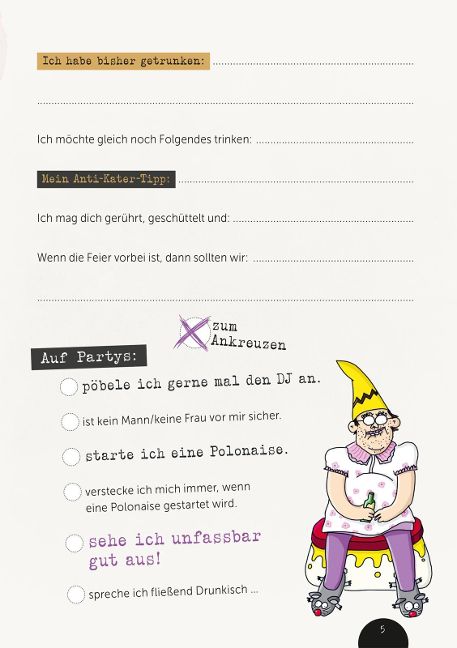 Ich habe bisher getrunken:
Ich möchte gleich noch Folgendes trinken:
Mein Anti-Kater-Tipp:
Ich mag dich gerührt, geschüttelt und:
Wenn die Feier vorbei ist, dann sollten wir:
zum
Ankreuzen
Auf Partys:
pöbele ich gerne mal den DJ an.
ist kein Mann/keine Frau vor mir sicher.
starte ich eine Polonaise.
verstecke ich mich immer, wenn
eine Polonaise gestartet wird.
sehe ich unfassbar
gut aus!
spreche ich fließend Drunkisch ...
5